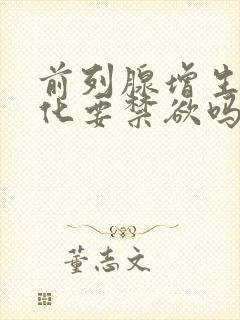 前列腺增生
化要禁欲吗
董志文